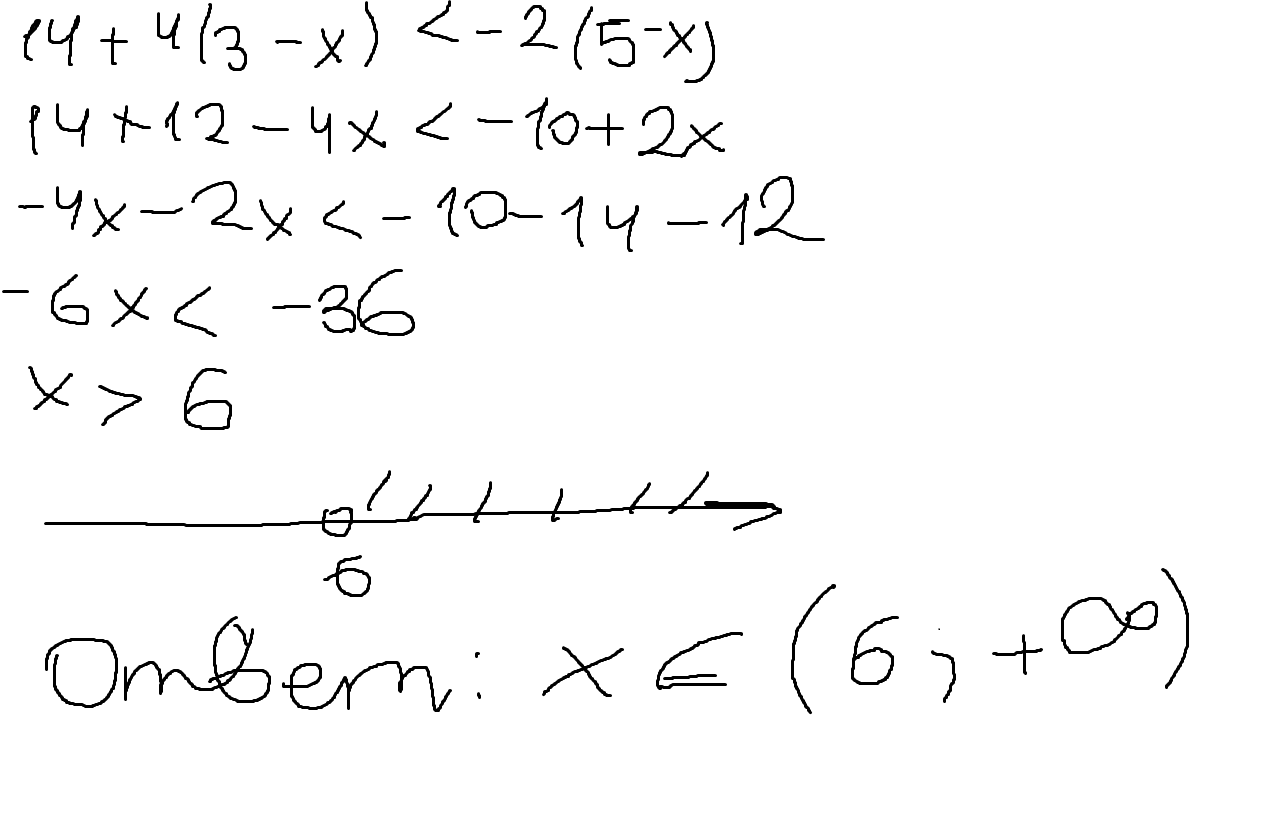 14 + 4(3 - x) < -2(5-x)
14 + 12 - 4x < -10 + 2x
-4x - 2x < -10 - 14 - 12
-6x < -36
x > 6
6
Ответ: x ∈ (6; +∞)